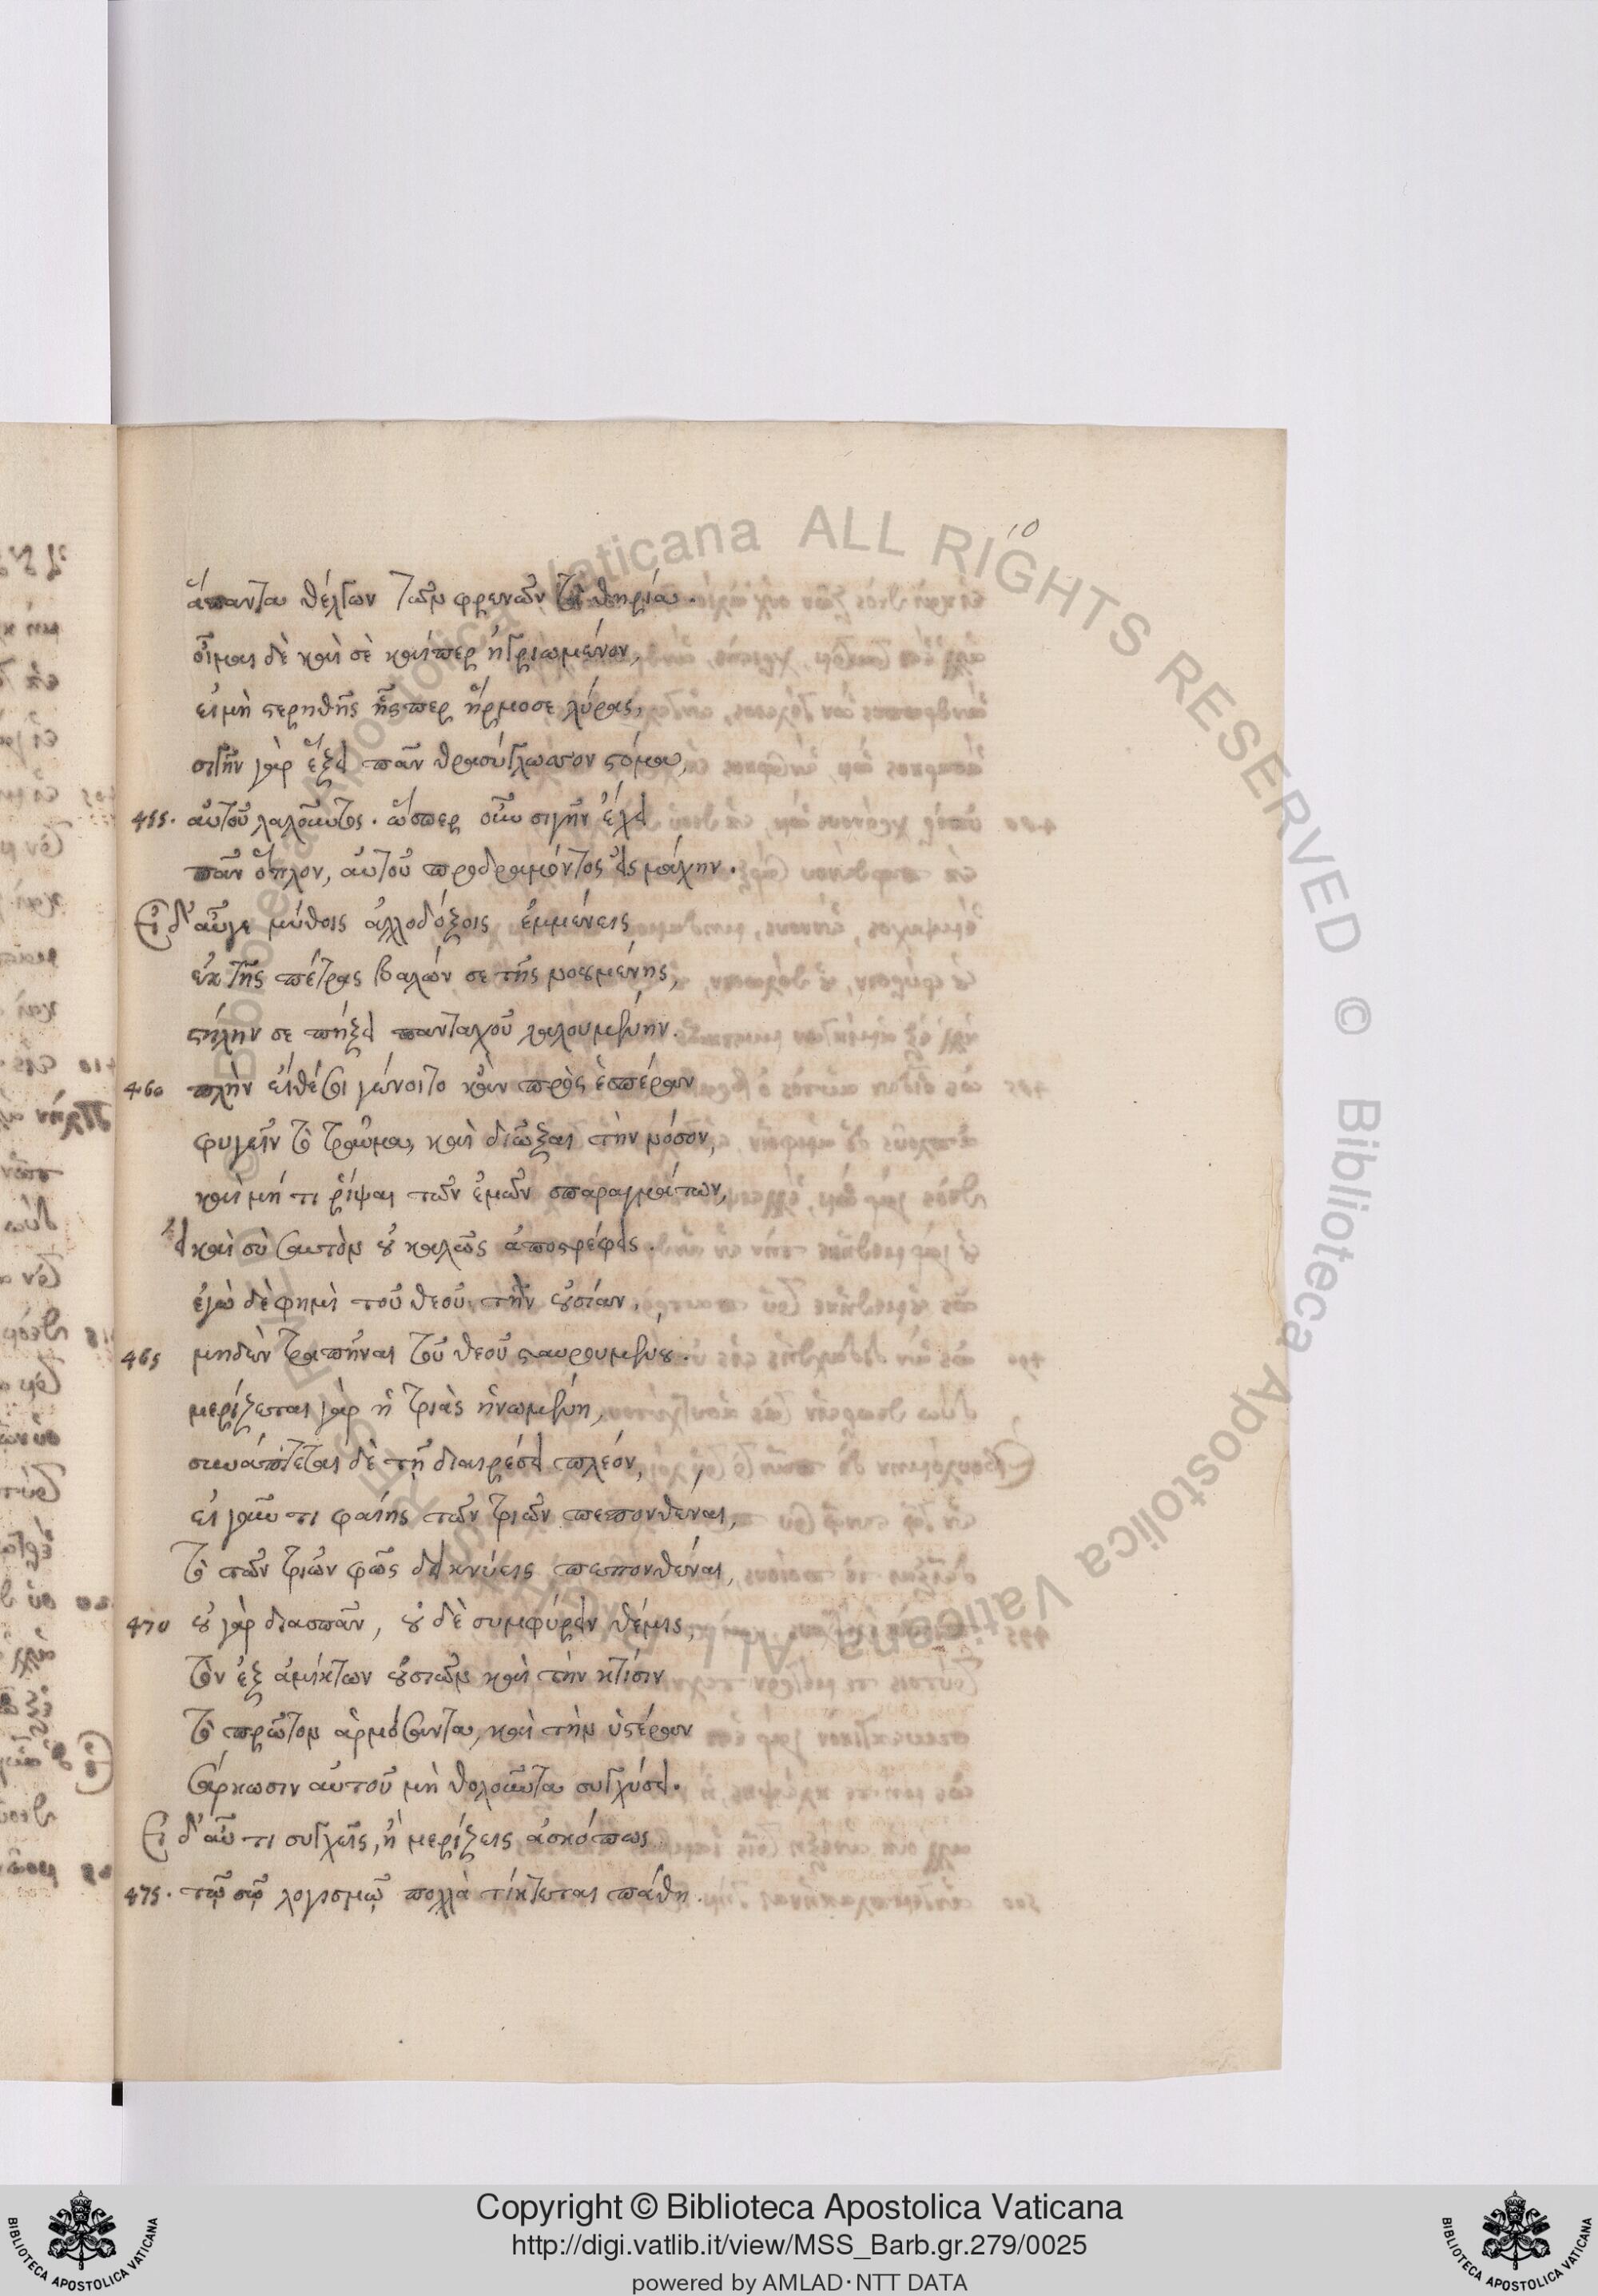 10
ἅπαντα θέλγων τῶν φρενῶν τὰ θηρία.
οἶμαι δὲ καὶ σὲ καίπερ ἠγριωμένον,
εἰ μὴ στερηθῇς ἧσπερ ἥρμοσε λύρας,
σιγὴν γὰρ ἕξει πᾶν θρασύγλωττον στόμα,
455. αὐτοῦ λαλοῦντος. ὥσπερ οὖν σιγὴν ἔχει
πᾶν ὅπλον, αὐτοῦ προδραμόντος εἰς μάχην.
Εἰ δ' αὖγε μύθοις ἀλλοδόξοις ἐμμένεις
ἐκ τῆς πέτρας βαλών σε τῆς νοουμένης,
στήλην σε πήξει πανταχοῦ λαλουμένην.
460 πλὴν εἴθε σοι γένοιτο κἂν πρὸς ἑσπέραν
φυγεῖν τὸ τραῦμα, καὶ διῶξαι τὴν νόσον,
καὶ μή τι ῥίψαι τῶν ἐμῶν σπαραγμάτων,
εἰ καὶ σὺ σαυτὸν οὐ καλῶς ἀποστρέφεις.
ἐγὼ δὲ φημὶ τοῦ θεοῦ τὴν οὐσίαν,
465 μηδὲν τραπῆναι τοῦ θεοῦ σταυρουμένου.
μερίζεται γὰρ ἡ τριὰς ἡνωμένη,
συνάπτεται δὲ τῇ διαιρέσει πλέον,
εἰ γοῦν τι φαίης τῶν τριῶν πεπονθέναι,
τὸ τῶν τριῶν φῶς δεικνύεις πεπονθέναι,
470 οὐ γὰρ διασπᾶν, οὐδὲ συμφύρειν θέμις,
τὸν ἐξ ἀμίκτων οὐσιῶν καὶ τὴν κτίσιν
τὸ πρῶτον ἁρμόσαντα, καὶ τὴν ὑστέραν
σάρκωσιν αὐτοῦ μὴ θολοῦντα συγχύσει.
Εἰ δ' αὖ τι συγχεῖς, ἢ μερίζεις ἀσκόπως
475. τῷ σῷ λογισμῷ πολλὰ τίκτεται πάθη.
Biblioteca Apostolica Vaticana ALL RIGHTS RESERVED ©
Copyright © Biblioteca Apostolica Vaticana
http://digi.vatlib.it/view/MSS_Barb.gr.279/0025
powered by AMLAD·NTT DATA
BIBLIOTECA APOSTOLICA VATICANA
BIBLIOTECA APOSTOLICA VATICANA